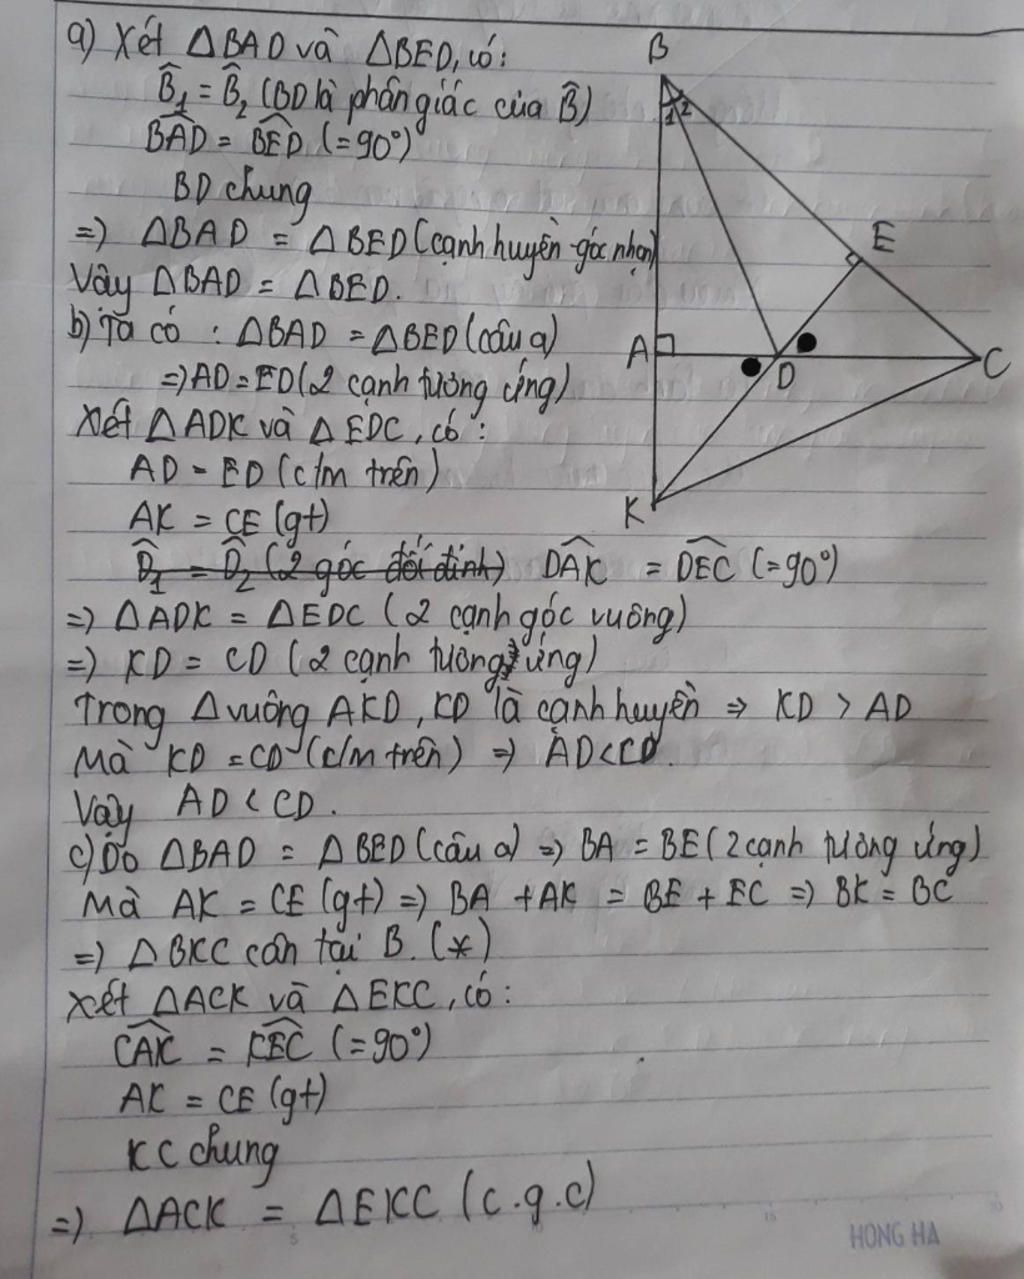 a) Xét ΔBAD và ΔBED, có:
B̂₁ = B̂₂ (BD là phân giác của B̂)
BAD = BED (=90°)
BD chung
=> ΔBAD = ΔBED (cạnh huyền-góc nhọn)
Vậy ΔBAD = ΔBED.
b) Ta có : ΔBAD = ΔBED (câu a)
=> AD = ED (2 cạnh tương ứng)
Xét ΔADK và ΔEDC, có:
AD = ED (c/m trên)
AK = CE (gt)
D̂₁ = D̂₂ (2 góc đối đỉnh) DAK = DEC (=90°)
=> ΔADK = ΔEDC (2 cạnh góc vuông)
=> KD = CD (2 cạnh tương ứng)
Trong Δ vuông AKD, KD là cạnh huyền => KD > AD
Mà KD = CD (c/m trên) => AD < CD.
Vậy AD < CD.
c) Do ΔBAD = ΔBED (câu a) => BA = BE (2 cạnh tương ứng)
Mà AK = CE (gt) => BA + AK = BE + EC => BK = BC
=> ΔBKC cân tại B. (*)
Xét ΔACK và ΔEKC, có:
CAK = KEC (=90°)
AK = CE (gt)
KC chung
=> ΔACK = ΔEKC (c.g.c)
B
1 2
E
A
D
C
K
5
15
HONG HA